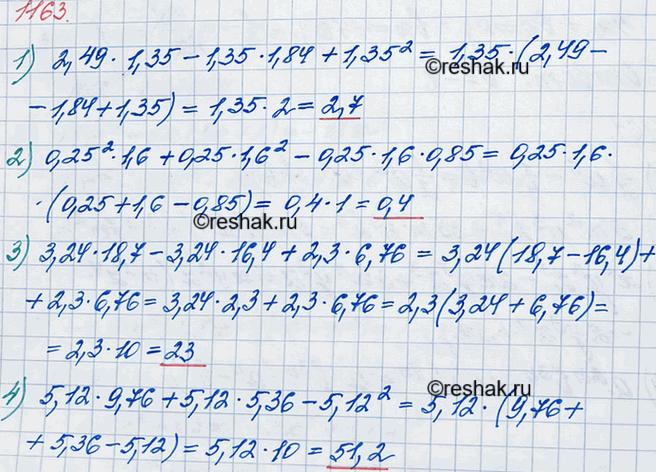 1163.
1) 2,49 · 1,35 − 1,35 · 1,84 + 1,35² = 1,35 · (2,49 −
©reshak.ru
− 1,84 + 1,35) = 1,35 · 2 = 2,7
2) 0,25² · 1,6 + 0,25 · 1,6² − 0,25 · 1,6 · 0,85 = 0,25 · 1,6 ·
· (0,25 + 1,6 − 0,85) = 0,4 · 1 = 0,4
©reshak.ru
3) 3,24 · 18,7 − 3,24 · 16,4 + 2,3 · 6,76 = 3,24 (18,7 − 16,4) +
+ 2,3 · 6,76 = 3,24 · 2,3 + 2,3 · 6,76 = 2,3 (3,24 + 6,76) =
= 2,3 · 10 = 23
©reshak.ru
4) 5,12 · 9,76 + 5,12 · 5,36 − 5,12² = 5,12 · (9,76 +
+ 5,36 − 5,12) = 5,12 · 10 = 51,2